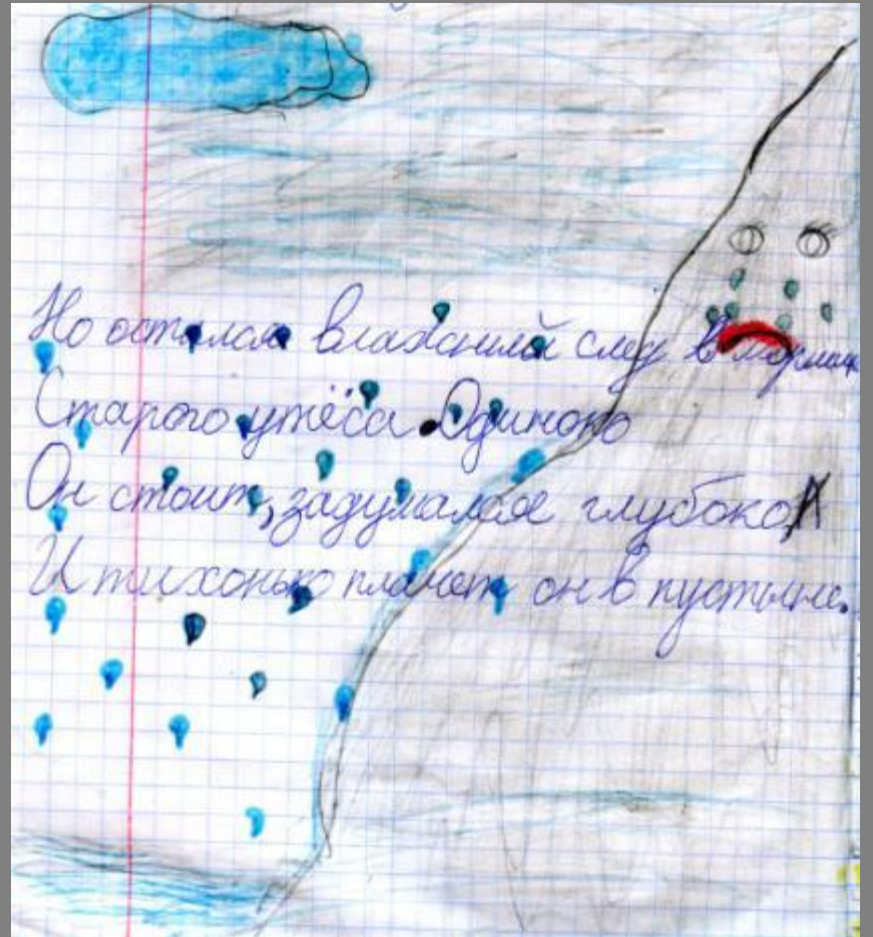 Но остался влажный след в морщине
Старого утёса. Одиноко
Он стоит, задумался глубоко
И тихонько плачет он в пустыне.